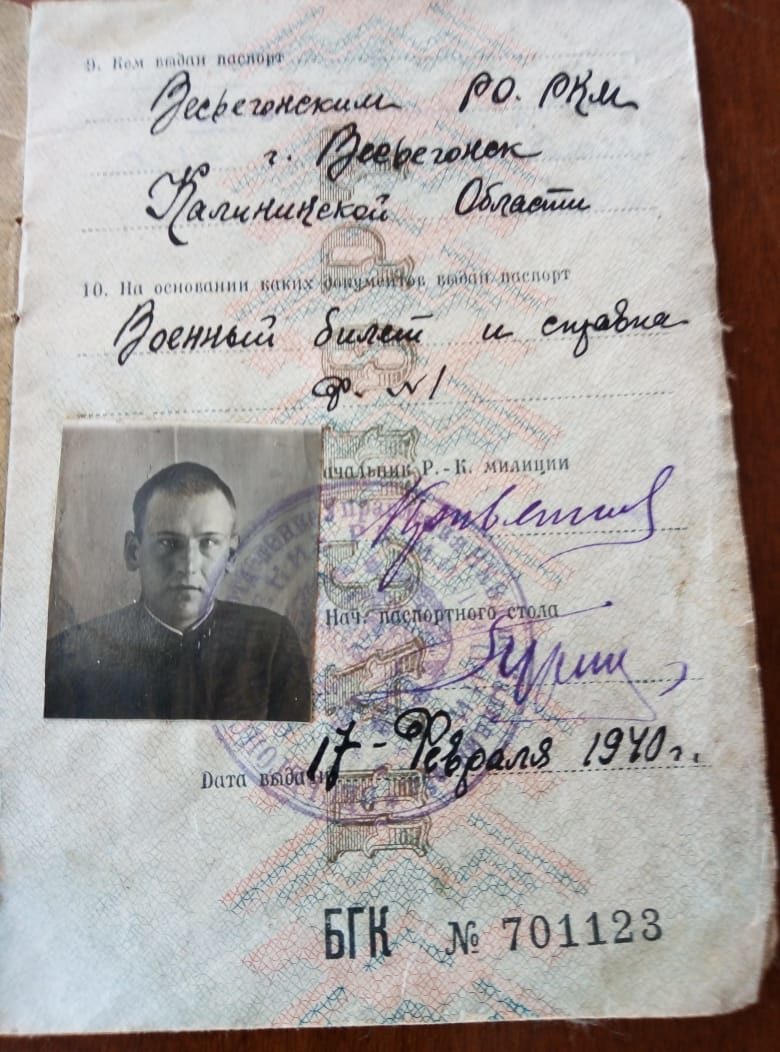 9. Кем выдан паспорт
Весьегонским РО. РКМ
г. Весьегонск
Калининской Области
10. На основании каких документов выдан паспорт
Военный билет и справка
Ф. №1
ачальник Р.-К. милиции
Нач. паспортного стола
Дата выда 17 - Февраля 1940 г.
БГК № 701123
ПАСПОРТ